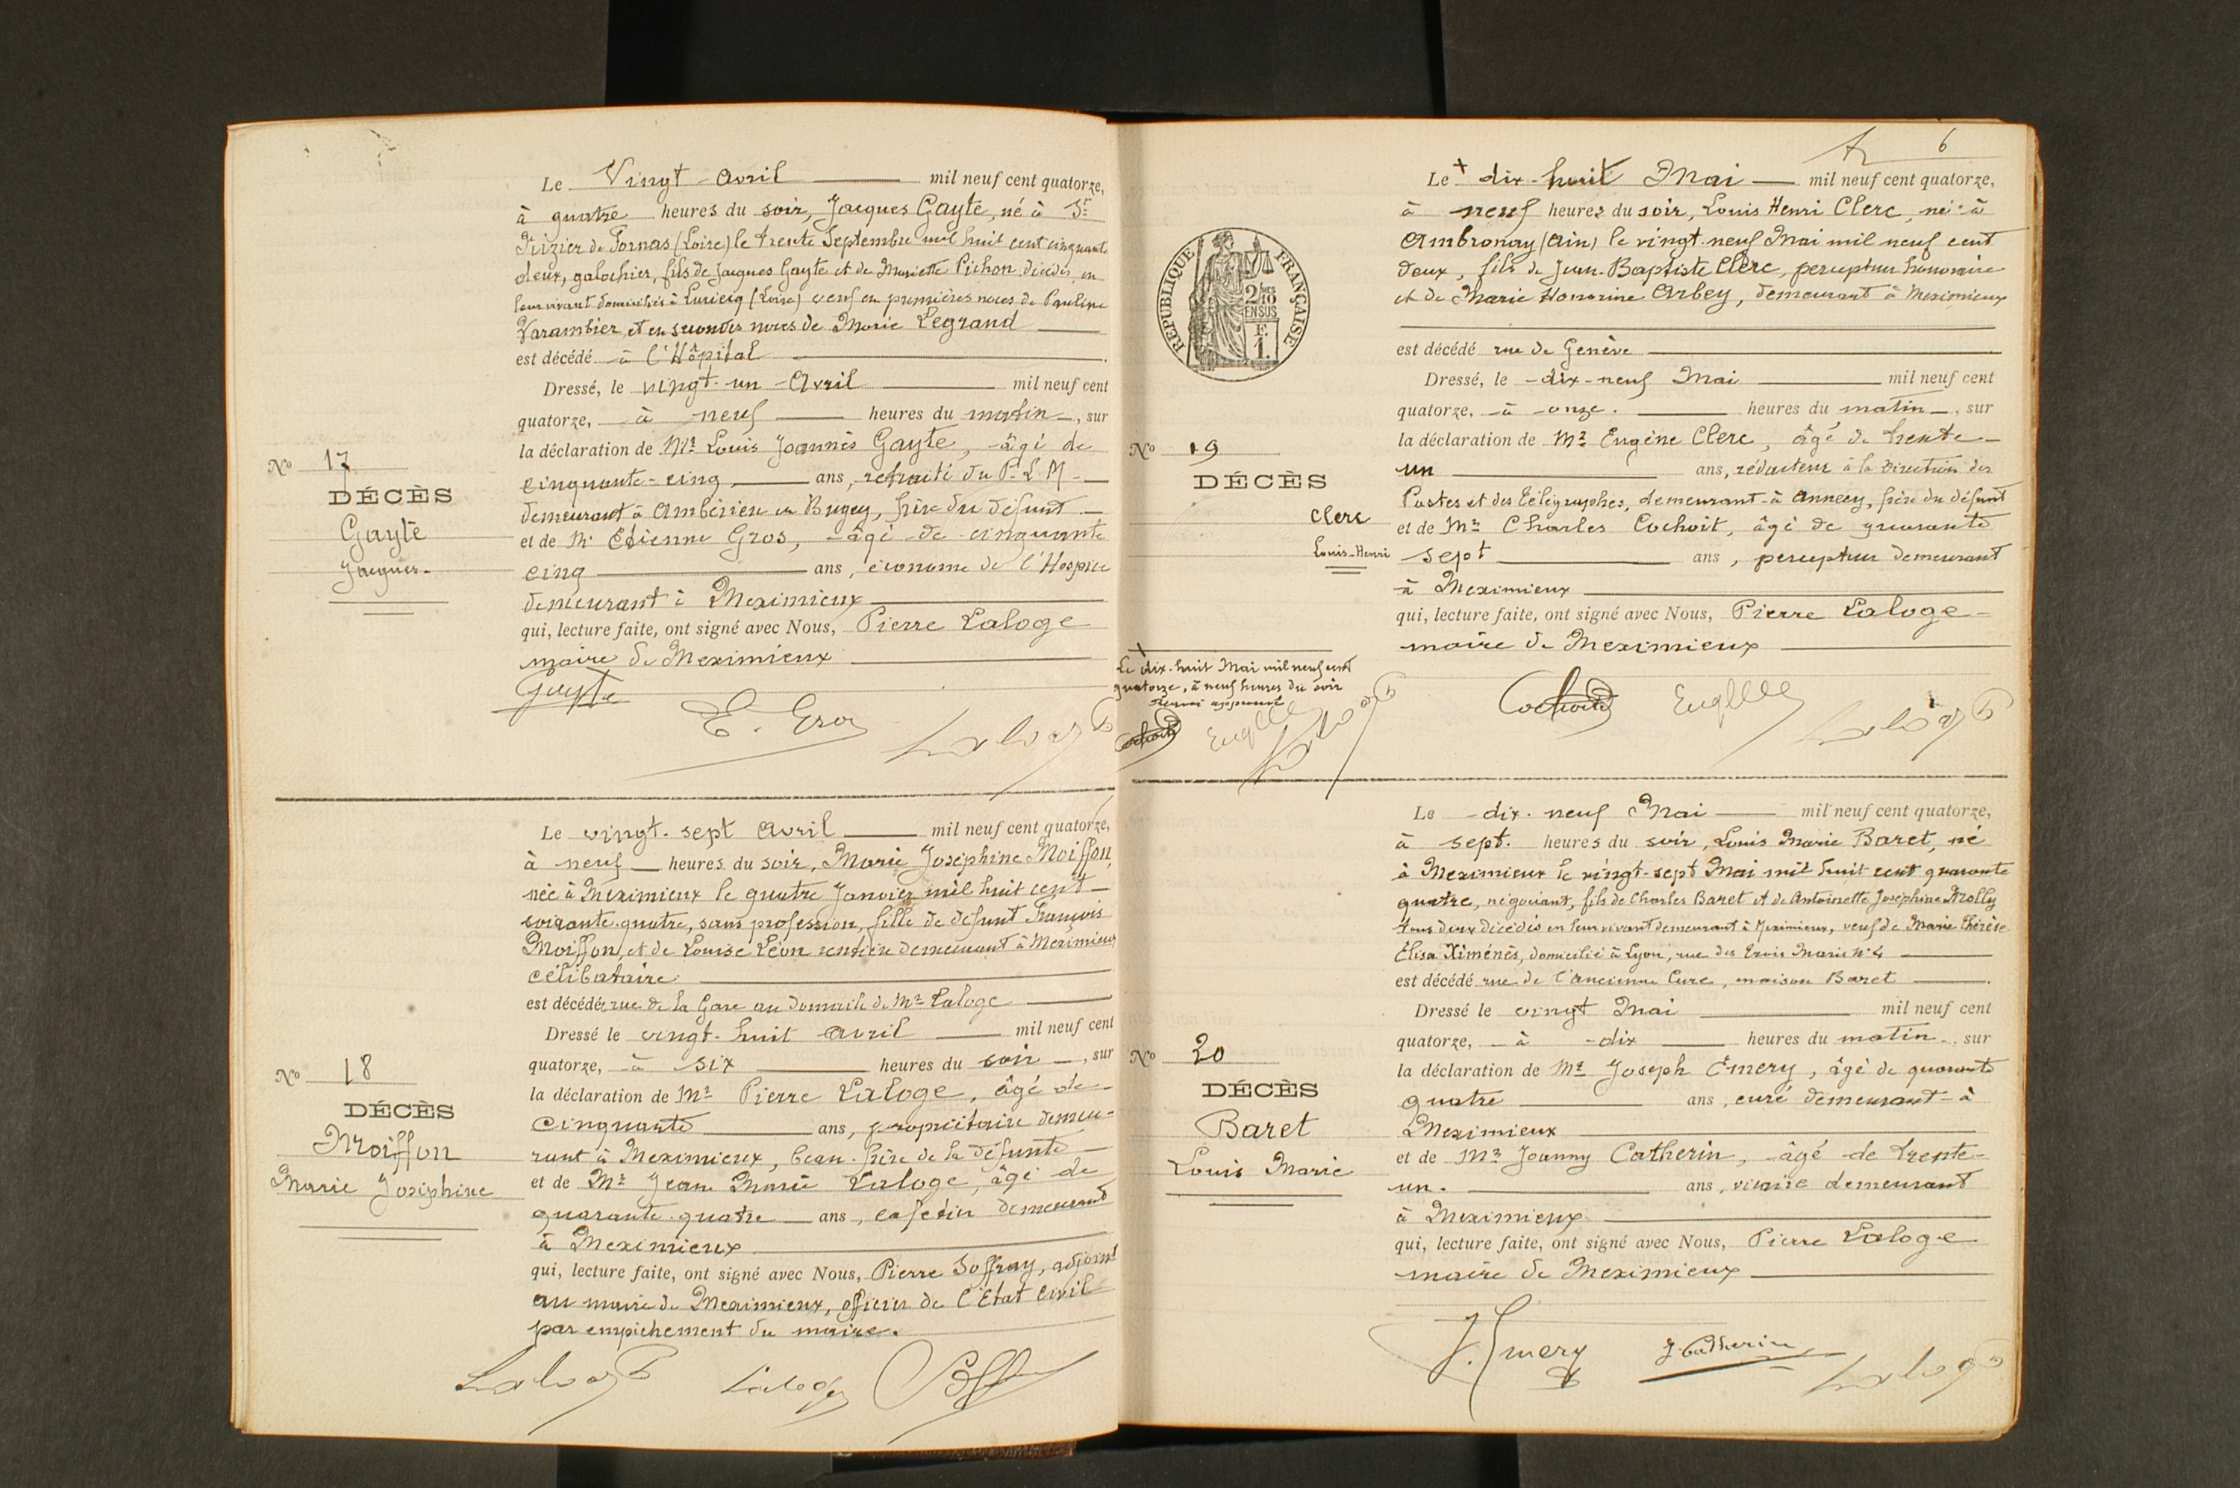 Le Vingt Avril mil neuf cent quatorze,
à quatre heures du soir, Jacques Gayte, né à St
Priest de Fornas (Loire) le trente Septembre mil huit cent cinquante
deux, galochier, fils de Jacques Gayte et de Mariette Pichon décédés, en
leur vivant domiciliés à Luriecq (Loire) veuf en premières noces de Pauline
Varambier, et en secondes noces de Marie Legrand
est décédé à l'Hôpital
Dressé, le vingt-un Avril mil neuf cent
quatorze, à neuf heures du matin, sur
la déclaration de Mr Louis Joannès Gayte, âgé de
cinquante-cinq ans, retraité du P.L.M.
demeurant à Ambérieu en Bugey, frère du défunt
et de Mr Etienne Gros, âgé de cinquante
cinq ans, économe de l'Hospice
demeurant à Meximieux
qui, lecture faite, ont signé avec Nous, Pierre Laloge
maire de Meximieux
No 17
DÉCÈS
Gayte
Jacques
Gayte
E. Gros
Laloge P
Le vingt-sept Avril mil neuf cent quatorze,
à neuf heures du soir, Marie Joséphine Moiffon,
née à Meximieux le quatre Janvier mil huit cent
soixante-quatre, sans profession, fille de défunt François
Moiffon, et de Louise Léon rentière demeurant à Meximieux
célibataire
est décédée, rue de la Gare au domicile de Mr Laloge
Dressé le vingt-huit Avril mil neuf cent
quatorze, à six heures du soir, sur
la déclaration de Mr Pierre Laloge, âgé de
cinquante ans, propriétaire demeu-
rant à Meximieux, beau-frère de la défunte
et de Mr Jean Marie Laloge, âgé de
quarante-quatre ans, cafetier demeurant
à Meximieux
qui, lecture faite, ont signé avec Nous, Pierre Soffray, adjoint
au maire de Meximieux, officier de l'Etat Civil
par empêchement du maire.
No 18
DÉCÈS
Moiffon
Marie Joséphine
Laloge P
Laloge
6
RÉPUBLIQUE FRANÇAISE
2/10
EN SUS
F.
1.
Le + dix-huit Mai mil neuf cent quatorze,
à neuf heures du soir, Louis Henri Clerc, né à
Ambronay (Ain) le vingt-neuf Mai mil neuf cent
deux, fils de Jean-Baptiste Clerc, percepteur honoraire
et de Marie Honorine Arbey, demeurant à Meximieux
est décédé rue de Genève
Dressé, le dix-neuf Mai mil neuf cent
quatorze, à onze heures du matin, sur
la déclaration de Mr Eugène Clerc, âgé de trente
un ans, rédacteur à la Direction des
Postes et des Télégraphes, demeurant à Annecy, frère du défunt
et de Mr Charles Cochoit, âgé de quarante
sept ans, percepteur demeurant
à Meximieux
qui, lecture faite, ont signé avec Nous, Pierre Laloge
maire de Meximieux
No 19
DÉCÈS
Clerc
Louis-Henri
Le dix-huit Mai mil neuf cent
quatorze, à neuf heures du soir
Renvoi approuvé
Laloge P
Le dix-neuf Mai mil neuf cent quatorze,
à sept heures du soir, Louis Marie Baret, né
à Meximieux le vingt-sept Mai mil huit cent quarante
quatre, négociant, fils de Charles Baret et de Antoinette Joséphine
tous deux décédés en leur vivant demeurant à Meximieux, veuf de Marie Thérèse
Élisa Ximénès, domicilié à Lyon, rue des Trois Maries No 4
est décédé rue de l'ancienne Cure, maison Baret
Dressé le vingt Mai mil neuf cent
quatorze, à dix heures du matin, sur
la déclaration de Mr Joseph Émery, âgé de quarante
quatre ans, curé demeurant à
Meximieux
et de Mr Joanny Catherin, âgé de trente-
un ans, vicaire demeurant
à Meximieux
qui, lecture faite, ont signé avec Nous, Pierre Laloge
maire de Meximieux
No 20
DÉCÈS
Baret
Louis Marie
J. Emery
J. Catherin
Laloge P